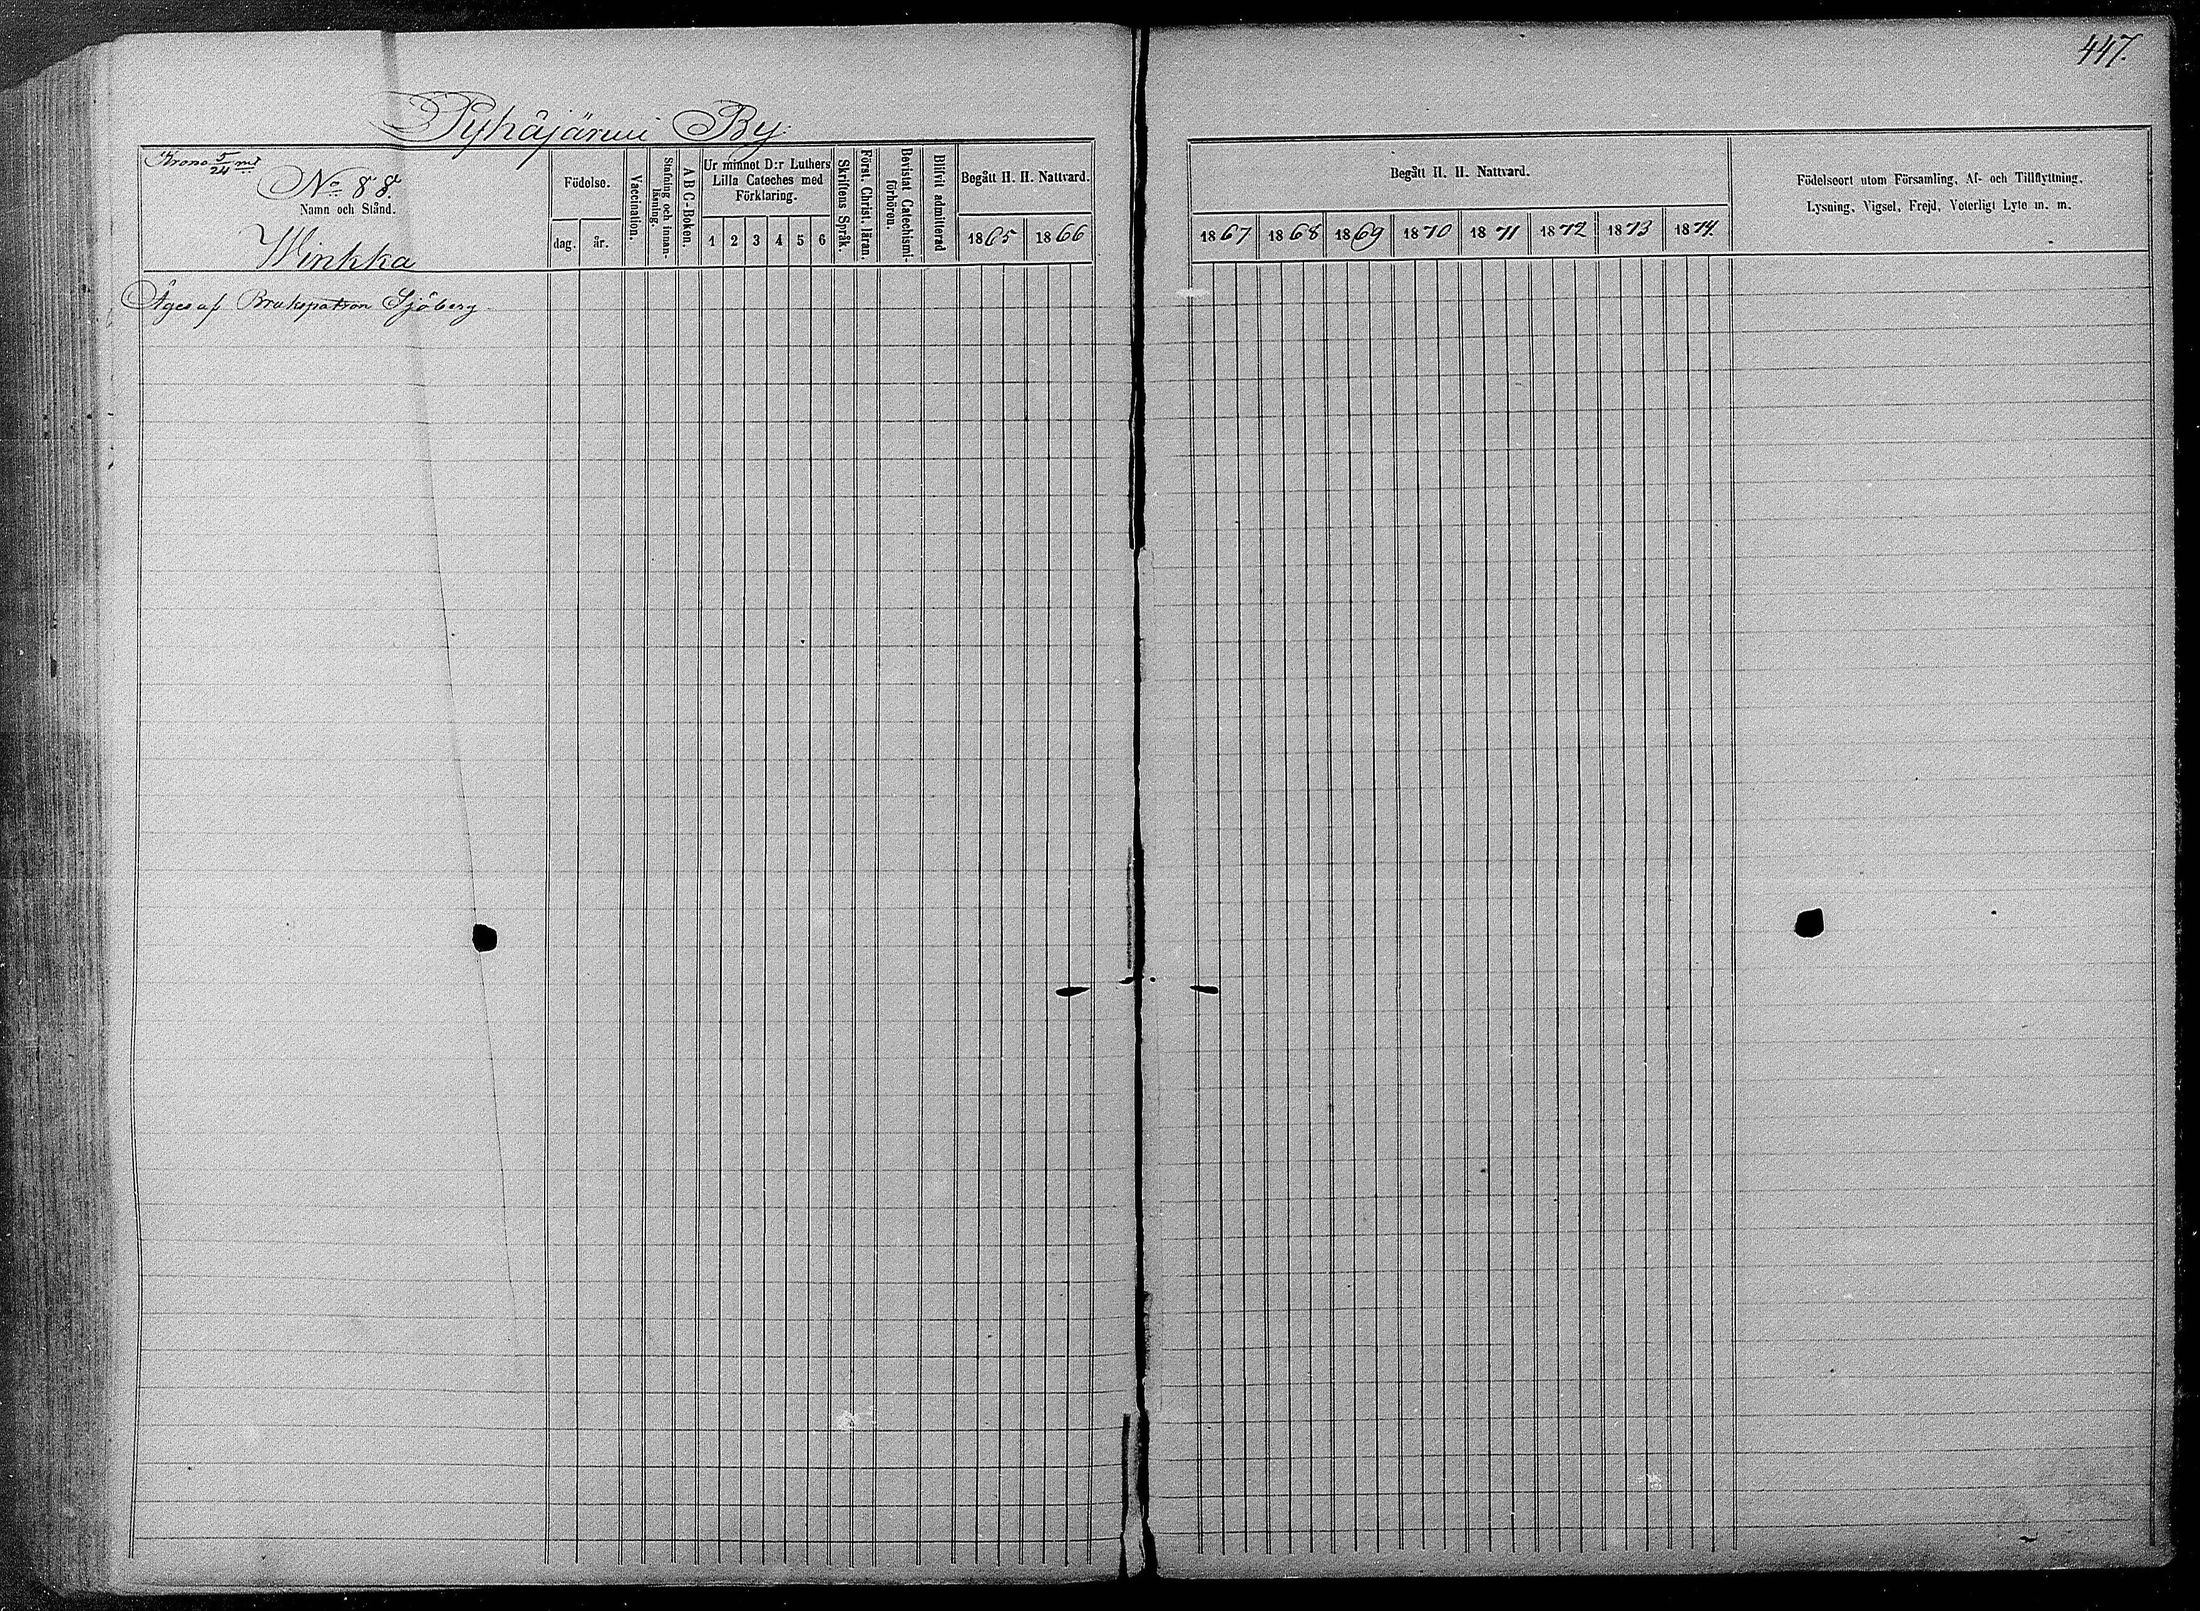 447.
Pyhäjärwi By.
Krono 5/24 ml
No 88.
Namn och Stånd.
Winkka
Födelse.
dag. år.
Vaccination.
Stafning och innanläsning.
A B C-Boken.
Ur minnet D:r Luthers
Lilla Cateches med
Förklaring.
1 2 3 4 5 6
Skriftens Språk.
Först. Christ. läran.
Bevistat Catechismiförhören.
Blifvit admitterad
Begått H. H. Nattvard.
1865 1866
Begått H. H. Nattvard.
1867 1868 1869 1870 1871 1872 1873 1874.
Födelseort utom Församling, Af- och Tillflyttning,
Lysning, Vigsel, Frejd, Veterligt Lyte m. m.
Äges af Brukspatron Sjöberg.